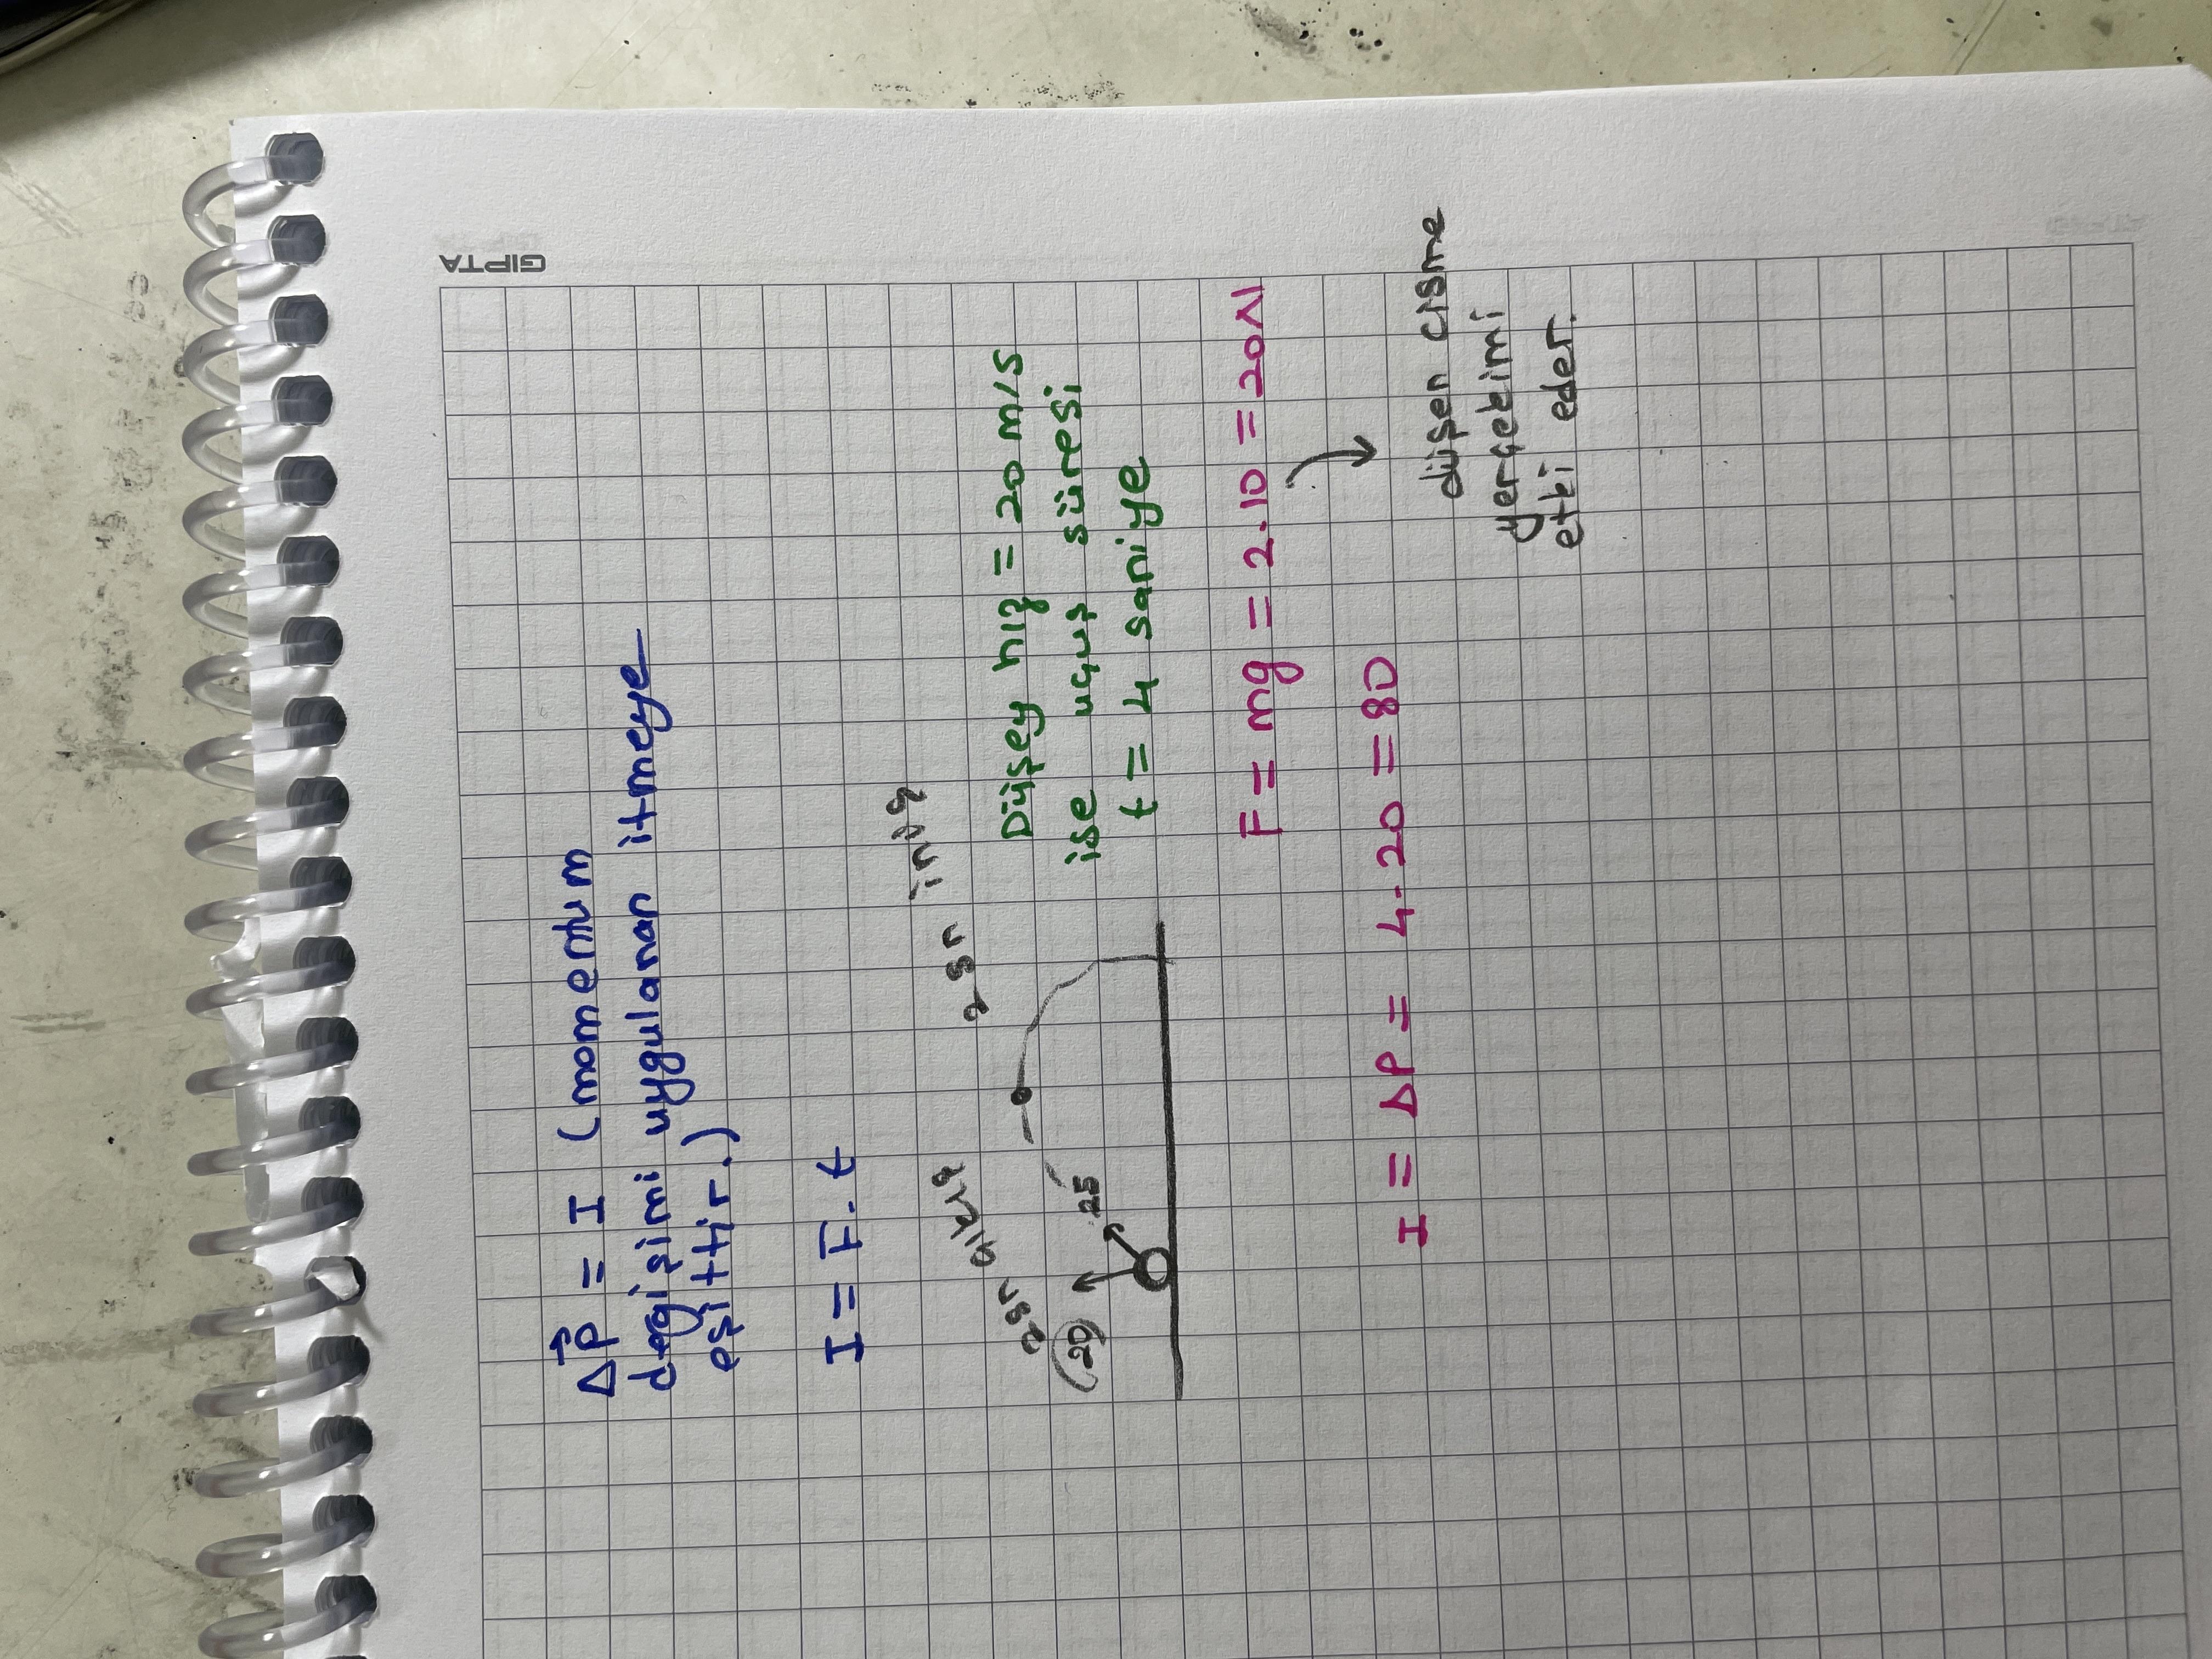 GIPTA
Δp⃗ = I (momentum
değişimi uygulanan itmeye
eşittir.)
I = F. t
2sn çıkış 2sn iniş
20 25
Düşey hız = 20 m/s
ise uçuş süresi
t = 4 saniye
F = mg = 2.10 = 20N
I = ΔP = 4.20 = 80
düşen cisme
yerçekimi
etki eder.